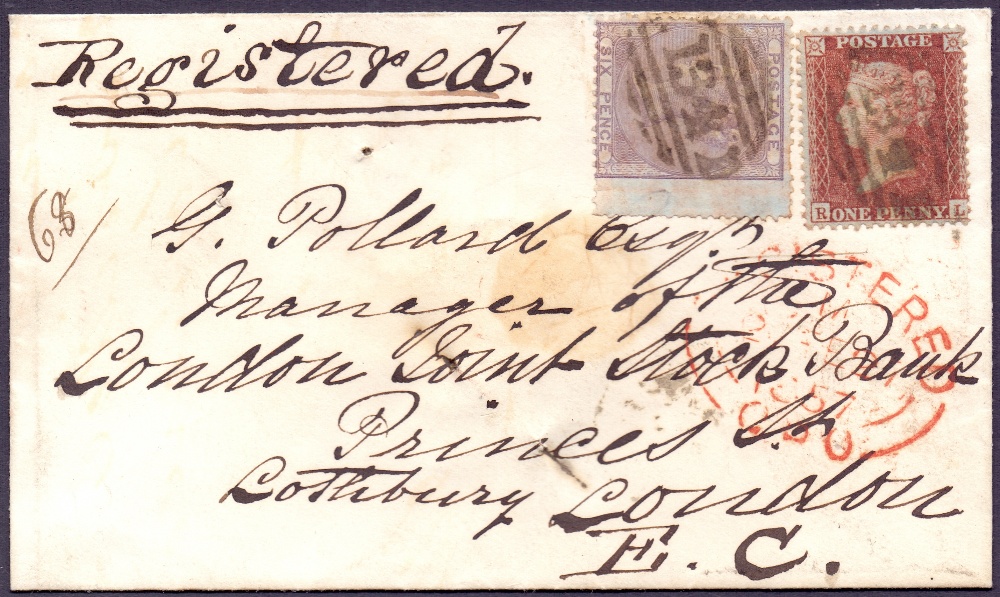 Registered.
SIX PENCE
POSTAGE
POSTAGE
R ONE PENNY L
G. Pollard Esqr.
Manager of the
London Joint Stock Bank
Princes St.
Lothbury London
E. C.